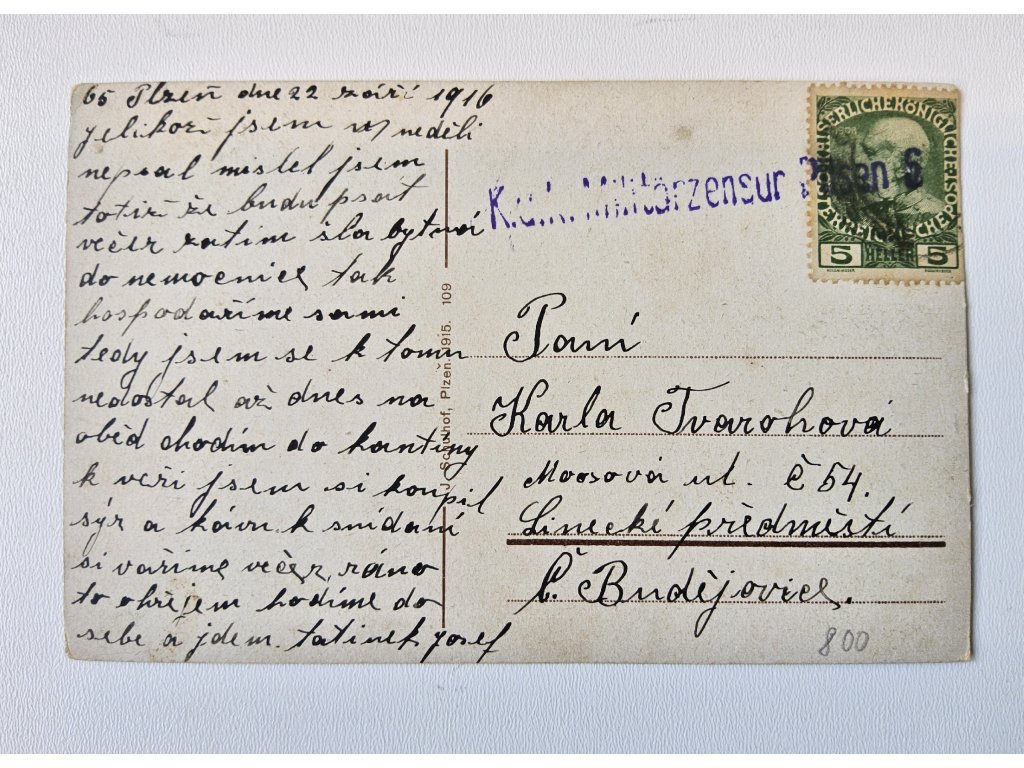 65 Plzeň dne 22 září 1916
jelikož jsem w neděli
nepsal mistel jsem
totiž že budu psát
večer zatim šla bytná
do nemocnice tak
hospodaříme sami
tedy jsem se k tomu
nedostal až dnes na
oběd chodím do kantiny
k veři jsem si koupil
sýr a kávu k snídaní
si vaříme večer, ráno
to ohřejem hodíme do
sebe a jdem. tatinek Josef
J. Schulhof, Plzeň, 1915. 109
K.u.K. Militärzensur Pilsen S
KAISERLICHEKÖNIGLICHE
ÖSTERREICHISCHE
1908
5 HELLER 5
Paní
Karla Tvarohová
Moosová ul. č 54.
Linecké předměstí
Č. Budějovice.
800